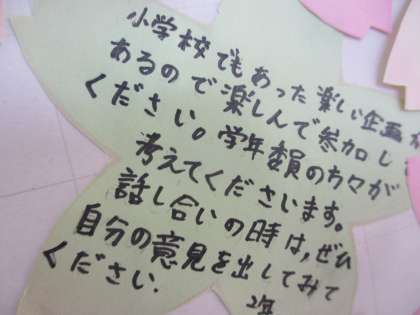 小学校でもあった楽しい企画が
あるので楽しんで参加し
ください。学年委員の方々が
考えてくださいます。
話し合いの時は、ぜひ
自分の意見を出してみて
ください.
2年